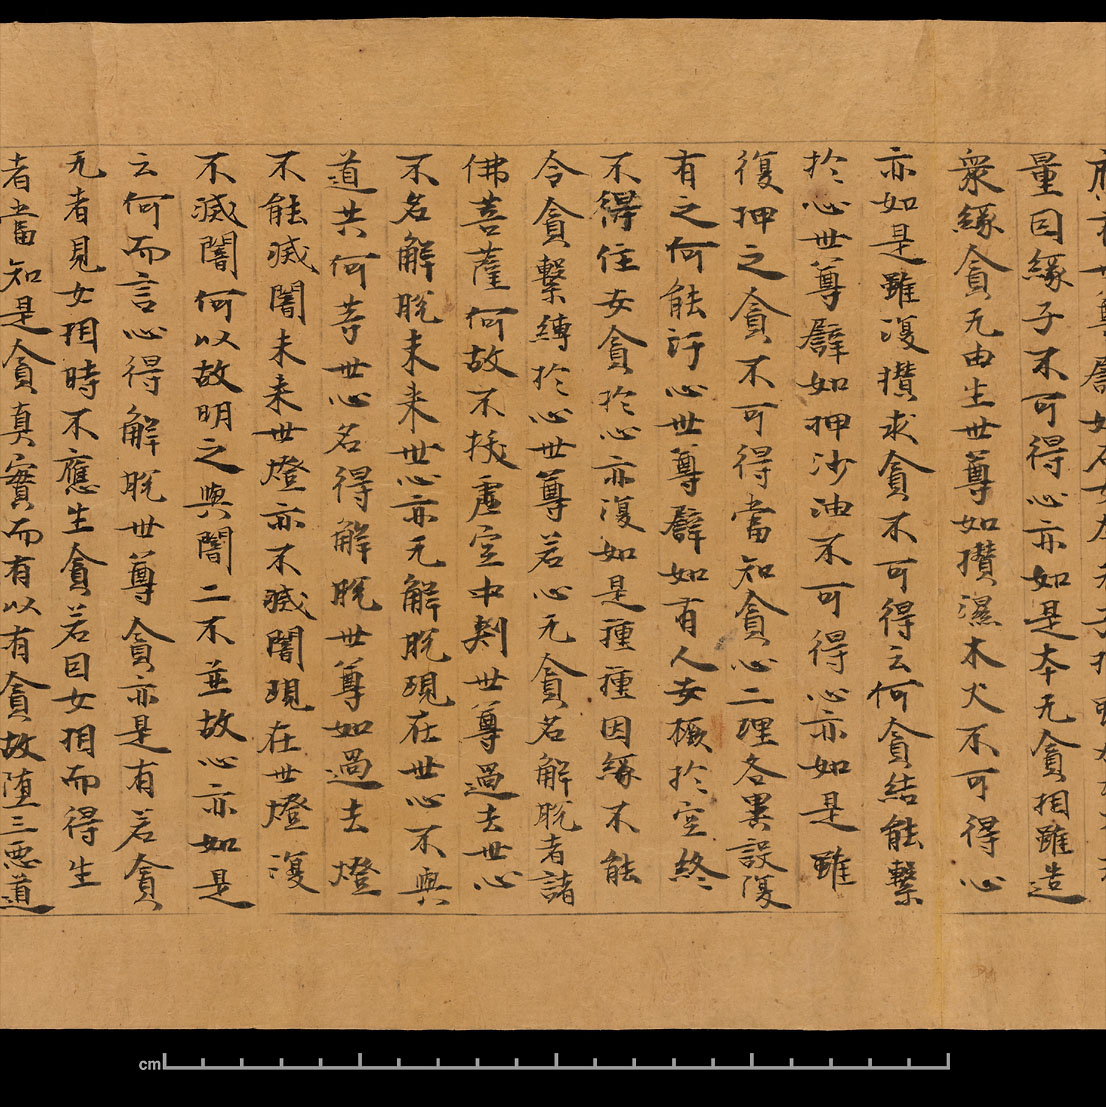 量因緣子不可得心亦如是本无貪相雖造
衆緣貪无由生世尊如攢濕木火不可得心
亦如是雖復攢求貪不可得云何貪結能繫
於心世尊譬如押沙油不可得心亦如是雖
復押之貪不可得當知貪心二理各異設復
有之何能汙心世尊譬如有人安橛於空終
不得住安貪於心亦復如是種種因緣不能
令貪繫縛於心世尊若心无貪名解脫者諸
佛菩薩何故不拔虛空中刺世尊過去世心
不名解脫未来世心亦无解脫現在世心不與
道共何等世心名得解脫世尊如過去燈
不能滅闇未来世燈亦不滅闇現在世燈復
不滅闇何以故明之與闇二不並故心亦如是
云何而言心得解脫世尊貪亦是有若貪
无者見女相時不應生貪若因女相而得生
者當知是貪真實而有以有貪故墮三惡道